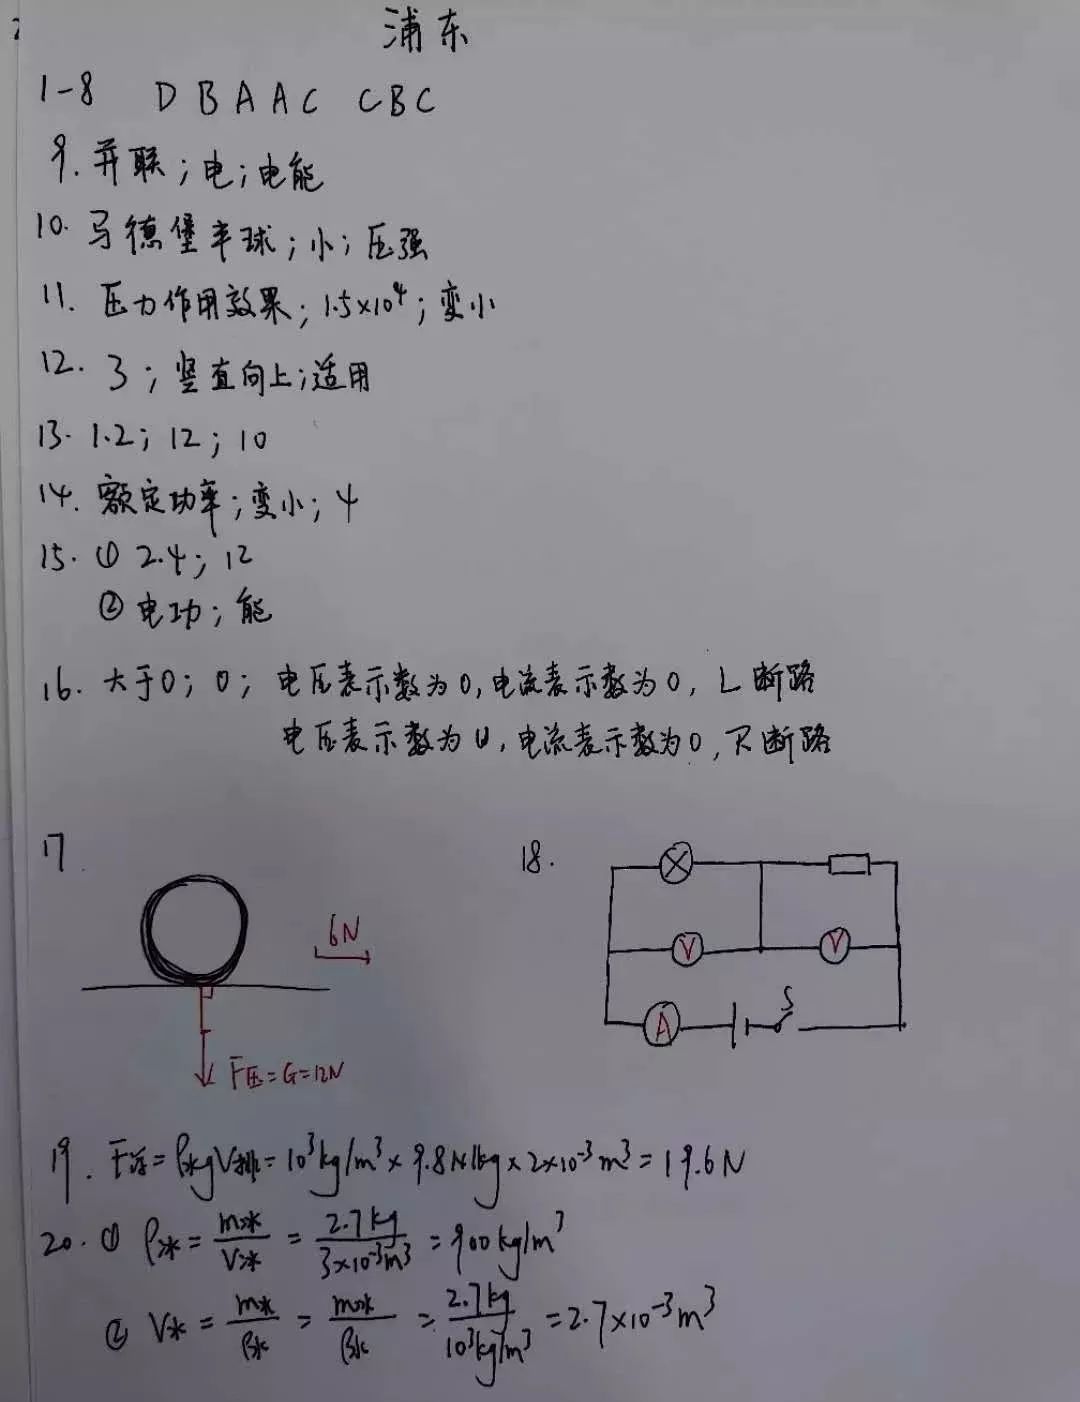 浦东
1-8 DBAAC CBC
9. 并联；电；电能
10. 马德堡半球；小；压强
11. 压力作用效果；1.5×10⁴；变小
12. 3；竖直向上；适用
13. 1.2；12；10
14. 额定功率；变小；4
15. ① 2.4；12
② 电功；能
16. 大于0；0；电压表示数为0，电流表示数为0，L断路
电压表示数为U，电流表示数为0，R断路
17
18.
6N
V
V
S
A
F压=G=12N
19. F浮=ρ水gV排=10³kg/m³×9.8N/kg×2×10⁻³m³=19.6N
20. ① ρ冰=m冰/V冰=2.7kg/3×10⁻³m³=900kg/m³
② V水=m水/ρ水=m冰/ρ水=2.7kg/10³kg/m³=2.7×10⁻³m³